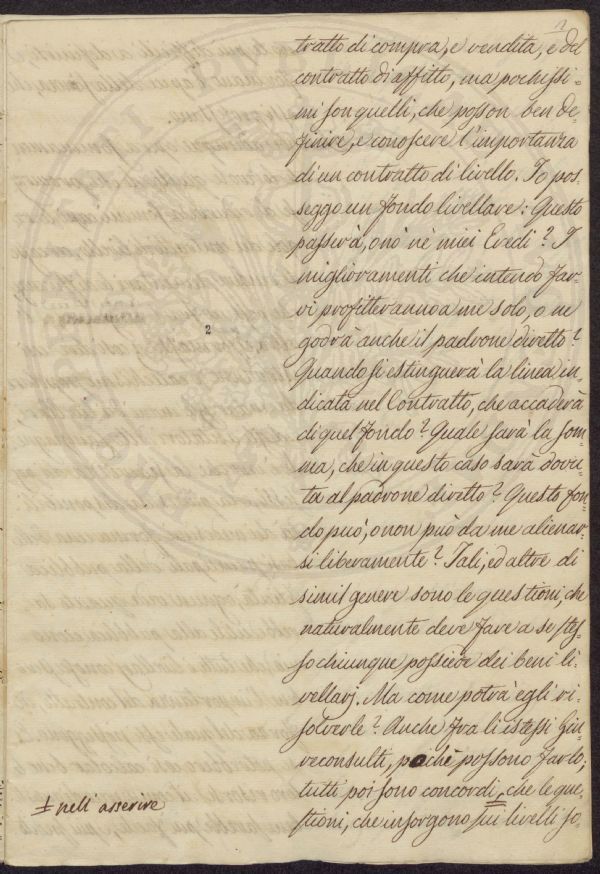 tratto di compra, e vendita, e del
contratto di affitto, ma pochissi-
mi son quelli, che posson ben de-
finire, e conoscere l'importanza
di un contratto di livello. Io pos-
seggo un fondo livellare: Questo
passerà, o nò ne' miei Eredi? I
miglioramenti che intendo far-
vi profitteranno a me solo, o ne
godrà anche il padrone diretto?
Quando si estinguerà la linea in-
dicata nel Contratto, che accaderà
di quel fondo? Quale sarà la som-
ma, che in questo caso sarà dovu-
ta al padrone diretto? Questo fon-
do può, o non può da me alienar-
si liberamente? Tali, ed altre di
simil genere sono le questioni, che
naturalmente deve fare a se stes-
so chiunque possiede dei beni li-
vellarj. Ma come potrà egli ri-
solverle? Anche fra li istessi Giu-
reconsulti, pochi possono farlo;
tutti poi sono concordi, che le que-
stioni, che insorgono sui livelli so-
2
± nell'asserire